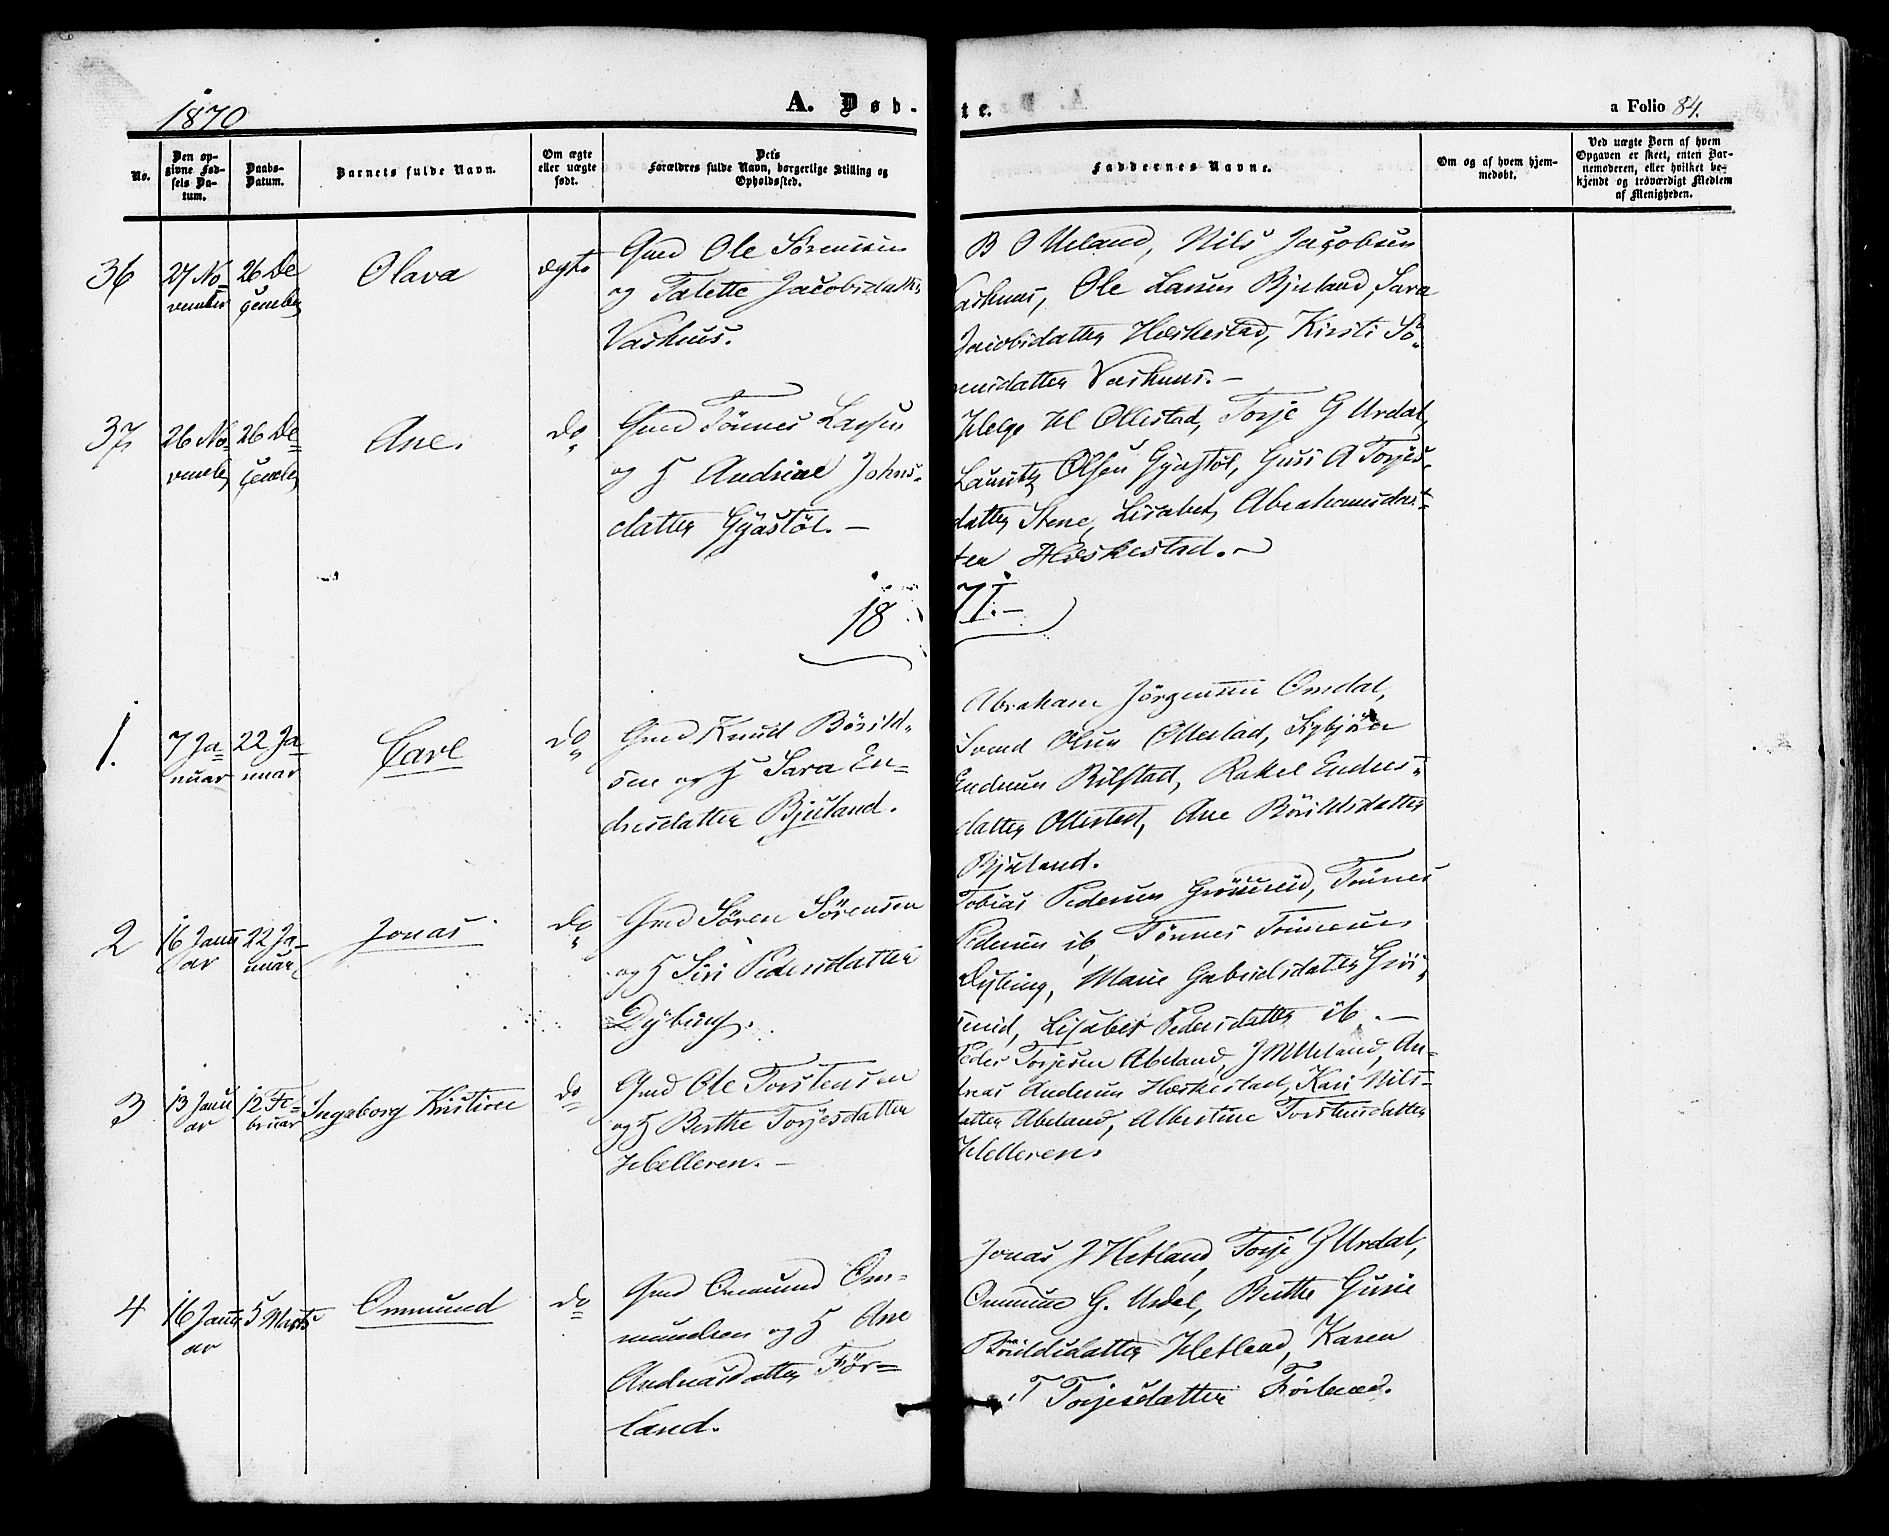 1870
A. Døb-
te.
a Folio 84.
No.
Den op-
givne Fød-
sels Da-
tum.
Daabs-
Datum.
Barnets fulde Navn.
Om ægte
eller uægte
født.
Dets
Forældres fulde Navn, borgerlige Stilling og
Opholdssted.
Faddernes Navne.
Om og af hvem hjem-
medøbt.
Ved uægte Børn af hvem
Opgaven er skeet, enten Bar-
nemoderen, eller hvilket be-
kjendt og troværdigt Medlem
af Menigheden.
36
27 No-
vember
26 De
cember
Olava
ægte
Gmd Ole Sørensen
og Talette Jacobsdatter
Vashus.
B O Ueland, Nils Jacobsen
Vashuus, Ole Larsen Bjuland, Sara
Jacobsdatter Hæskestad, Kirsti Sö-
rensdatter Vashuus. —
37
26 No-
vember
26 De-
cember
Ane.
do
Gmd Tönnes Larsen
og H Andrine Johns-
datter Gyastöl. —
Helge H Ollestad, Torje G Urdal,
Lauritz Olsen Gyastöl, Guri A Torjes-
datter Stene, Lisabet Abrahamsdat-
ter Hæskestad. —
1871. —
1.
7 Ja-
nuar
22 Ja-
nuar
Carl
do
Gmd Knud Börild-
sen og H Sara En-
dresdatter Bjuland.
Abraham Jörgensen Omdal,
Svend Olsen Ollestad, Sigbjörn
Endresen Bilstad, Rakel Endres-
datter Ollestad, Ane Börildsdatter
Bjuland.
2
16 Janu
ar
22 Ja-
nuar
Jonas
do
Gmd Sören Sörensen
og H Siri Pedersdatter
Dybing.
Tobias Pedersen Grösseid, Tönnes
Pedersen ib, Tönnes Tönnesen
Dybing, Marie Gabrielsdatter
Lisabet Pedersdatter ib. —
3
13 Janu
ar
12 Fe-
bruar
Ingeborg Kristine
do
Gmd Ole Torstensen
og H Berthe Torjesdatter
Helleren. —
Peder Torjesen Abeland, J M Ueland, An-
dreas Andersen Hæskestad, Kari Nils-
datter Abeland, Albertine Torstensdatter
Helleren.
4
16 Janu
ar
5 Marts
Ommund
do
Gmd Ommund Om-
mundsen og H Ane
Andreasdatter För-
land.
Jonas J Hetland, Torje G Urdal,
Ommund G. Urdal, Berthe Gurie
Börildsdatter Hetland, Karen
T Torjesdatter Förland.